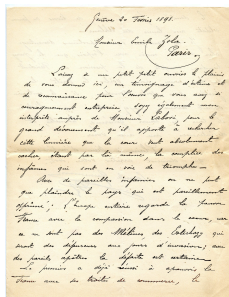 Genève 20 Février 1898.
Monsieur Emile Zola
Paris
Laissez à un petit petit ouvrier le plaisir
de vous donner ici, un témoignage d'estime et
de reconnaissance, pour l'œuvre que vous avez si
courageusement entreprise. Soyez également mon
interprète auprès de Monsieur Labori pour le
grand dévouement qu'il apporte à
cette lumière que la cour veut absolument
cacher, étant par là même, la complice des
qui sont en voie de triomphe.
Par de pareilles on ne peut
que plaindre le pays qui est pareillement
opprimé; l'Europe entière regarde la pauvre
France avec la compassion dans le cœur, car
ce ne sont pas des Mélines, des Esterhazy qui
seront des défenseurs aux jours d'invasion; avec
des pareils apôtres la défaite est certaine.
Le premier a déjà réussi à appauvrir la
France avec des traités de commerce, le